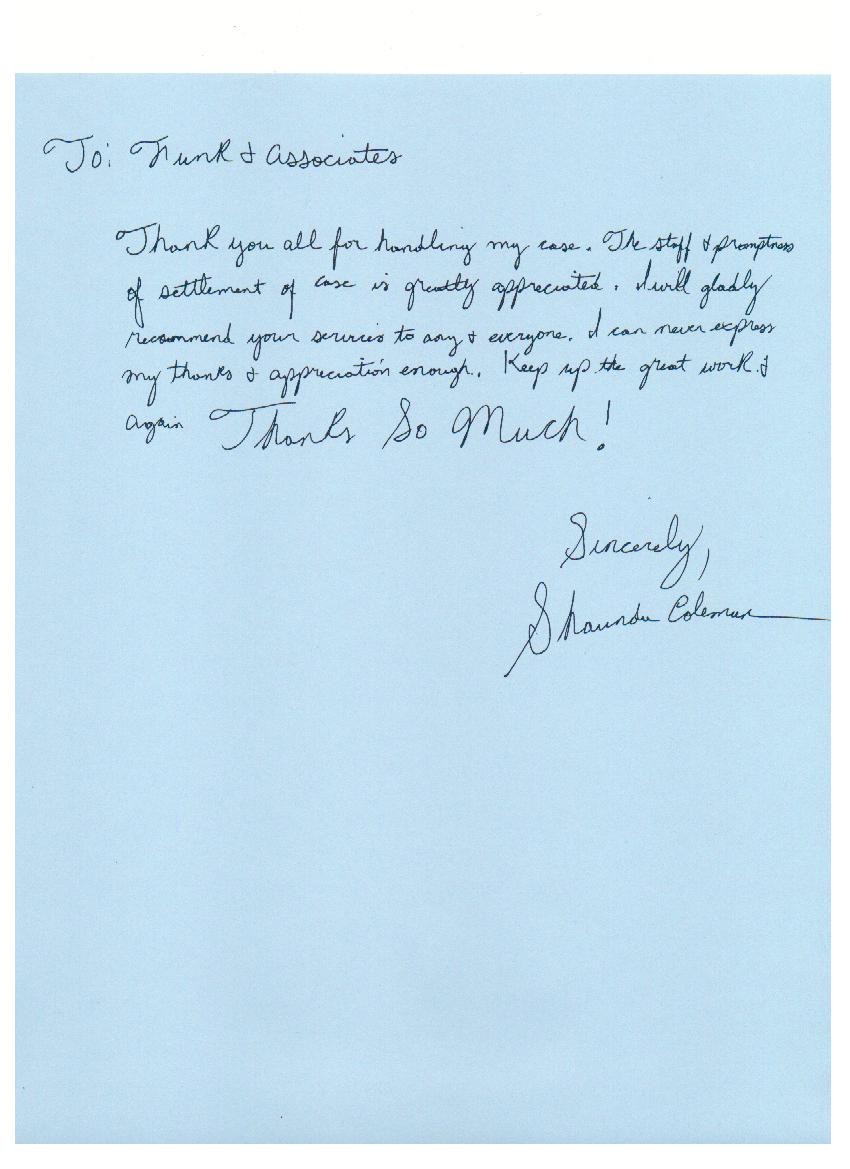 To: Funk & Associates
Thank you all for handling my case. The staff & promptness
of settlement of case is greatly appreciated. I will gladly
recommend your services to any & everyone. I can never express
my thanks & appreciation enough. Keep up the great work &
again Thanks So Much!
Sincerely,
Shaunda Coleman